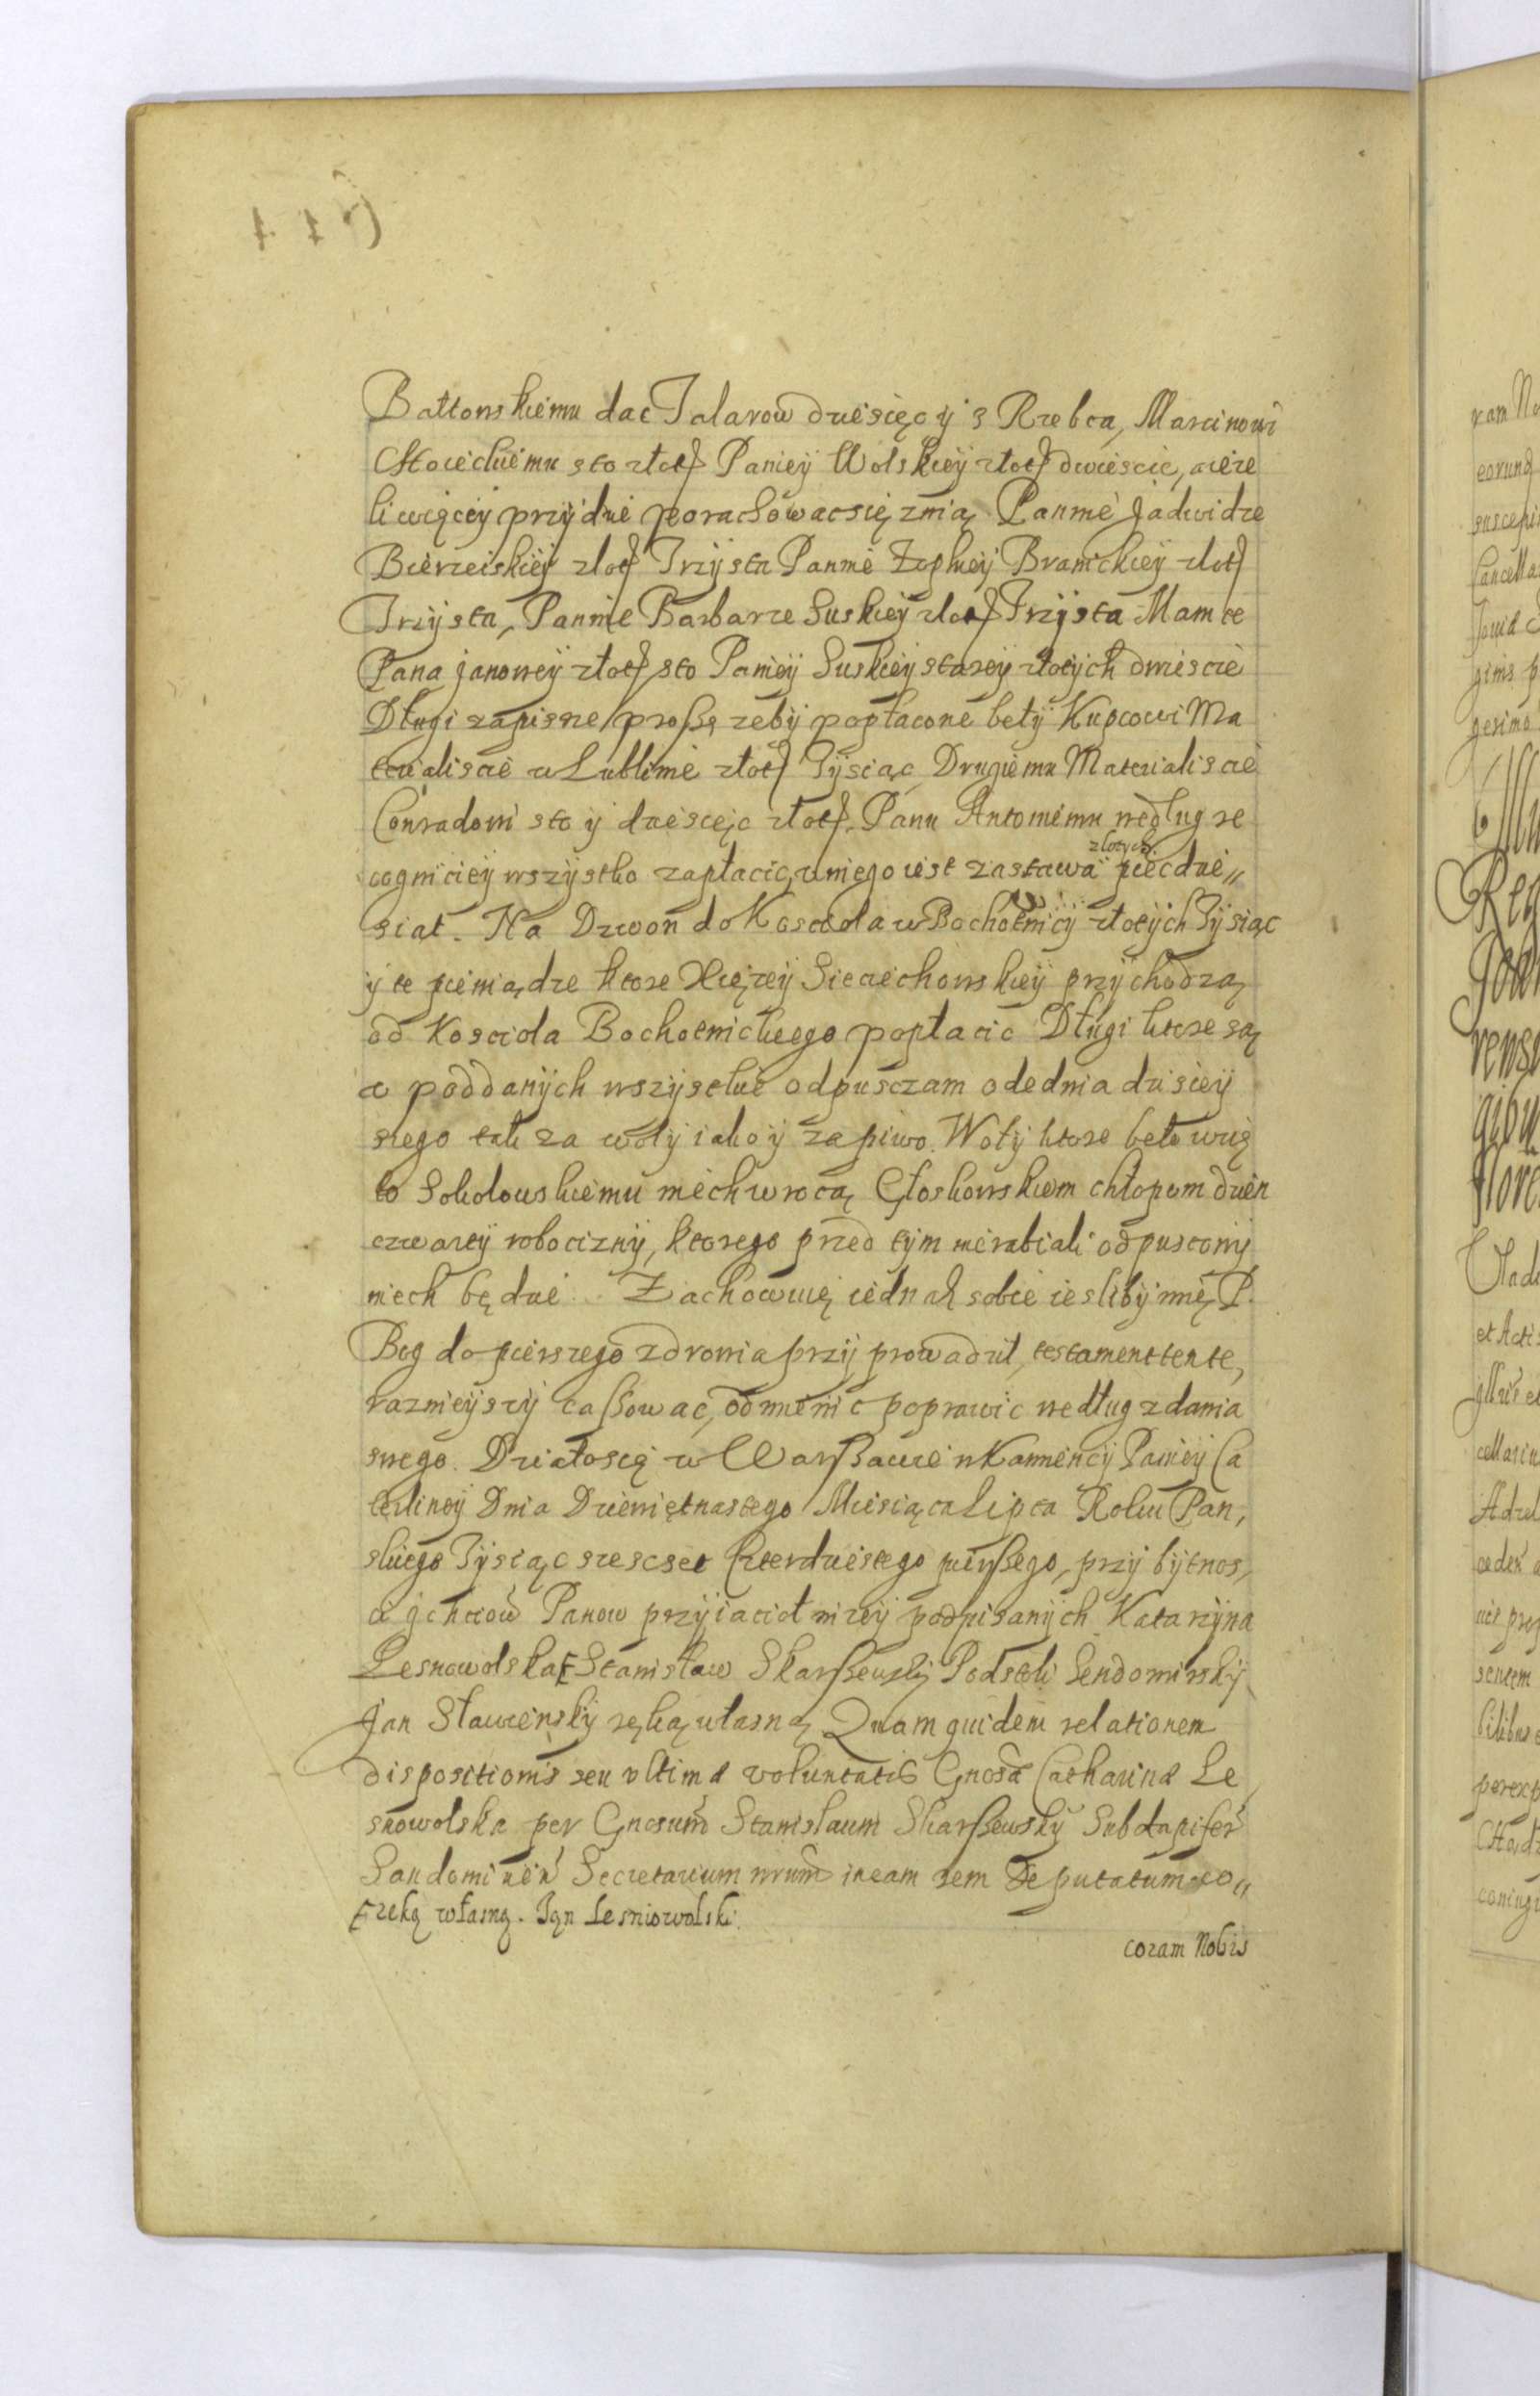 Battonskiemu dac Talarow dziesięc y z Rzebca, Marcinowi
Stoieckiemu sto złotꝭ Paniey Wolskiey złotꝭ dwiescie, a ieze
li więcey przydzie porachowac się z nią Pannie Jadwidze
Bierzeiskiey złotꝭ Trzysta Pannie Zophiey Branickiey złotꝭ
Trzysta, Pannie Barbarze Suskiey złotꝭ Trzysta Mamce
Pana Janowey złotꝭ sto Paniey Suskiey starey złotych dwiescie
Długi zapisne proszę zeby popłacone beły Kupcowi Ma
terialiscie w Lublinie złotꝭ Tysiąc Drugiemu Materialiscie
Conradowi sto y dziesięc złotꝭ. Panu Antoniemu według re
cogniciey wszystko zapłacic, u niego iest zastawa złotych piecdzie„
siat. Na Dzwon do Kosciola w Bochotnicy złotych Tysiąc
y te pieniądze ktore Xięzey Sieciechowskiey przychodzą
od Kosciola Bochotnickiego popłacic Długi ktore są
u poddanych wszystkie odpusczam ode dnia dzisiey
szego tak za woły iako y za piwo. Woły ktore beło wzię
to Sokolouskiemu niech wrocą Głoskowskiem chłopom dzien
czwarty robocizny, ktorego przed tym nierabiali odpusczony
niech będzie. Zachowuię iednak sobie iesliby mię P.
Bog do pierszego zdrowia przyprowadził, testament ten te,
raznieyszy cassowac, odmienic poprawic według zdania
swego. Działo się w Warszawie w Kamienicy Paniey Ca
terliney Dnia Dziewiętnastego Miesiąca Lipca Roku Pan,
skiego Tysiąc szescset Czterdziestego pierszego, przy bytnos,
ci Ichciow Panow przyiaciół nizey podpisanych Katarzyna
Lesnowolska Ꞙ Stanisław Skarszewsky Podstoli Sendomirsky
Jan Stawiensky ręką własną Quam quidem relationem
dispositionis seu vltimæ voluntatis Gnosæ Catharinæ Le
snowolska per Gnosum Stanislaum Skarszewsky Subdapifer
Sandomirien Secretarium nrum in eam rem Deputatum co„
Ꞙ ręką własną. Jan Lesniowolski.
coram Nobis